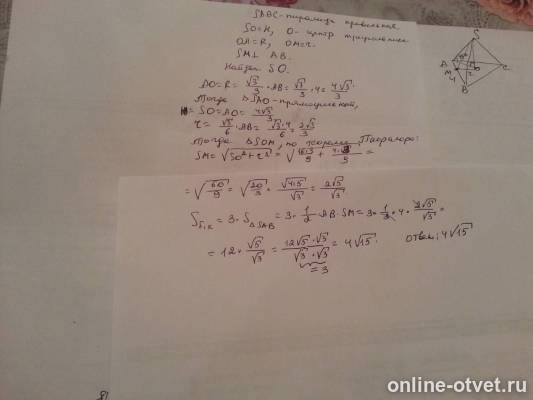 SABC-пирамида правильная.
SO=H, O- центр треугольника
OA=R, OM=r.
SM⊥ AB.
Найти SO.
AO=R = √3/3 · AB = √3/3 · 4 = 4√3/3
Тогда ΔSAO-прямоугольный,
H= SO=AO= 4√3/3
r = √3/6 · AB = √3·4/6 = 2√3/3
тогда ΔSOM, по теореме Пифагора:
SM= √SO²+r² = √16·3/9 + 4·3/9 =
= √60/9 = √20/3 = √4·5/√3 = 2√5/√3
Sбок = 3· SΔSAB = 3· 1/2 · AB· SM = 3· 1/2 · 4 · 2√5/√3 =
= 12 · √5/√3 = 12√5 · √3/√3 · √3 = 4√15. ответ: 4√15
=3
S
A
M
B
C
O
r
online-otvet.ru